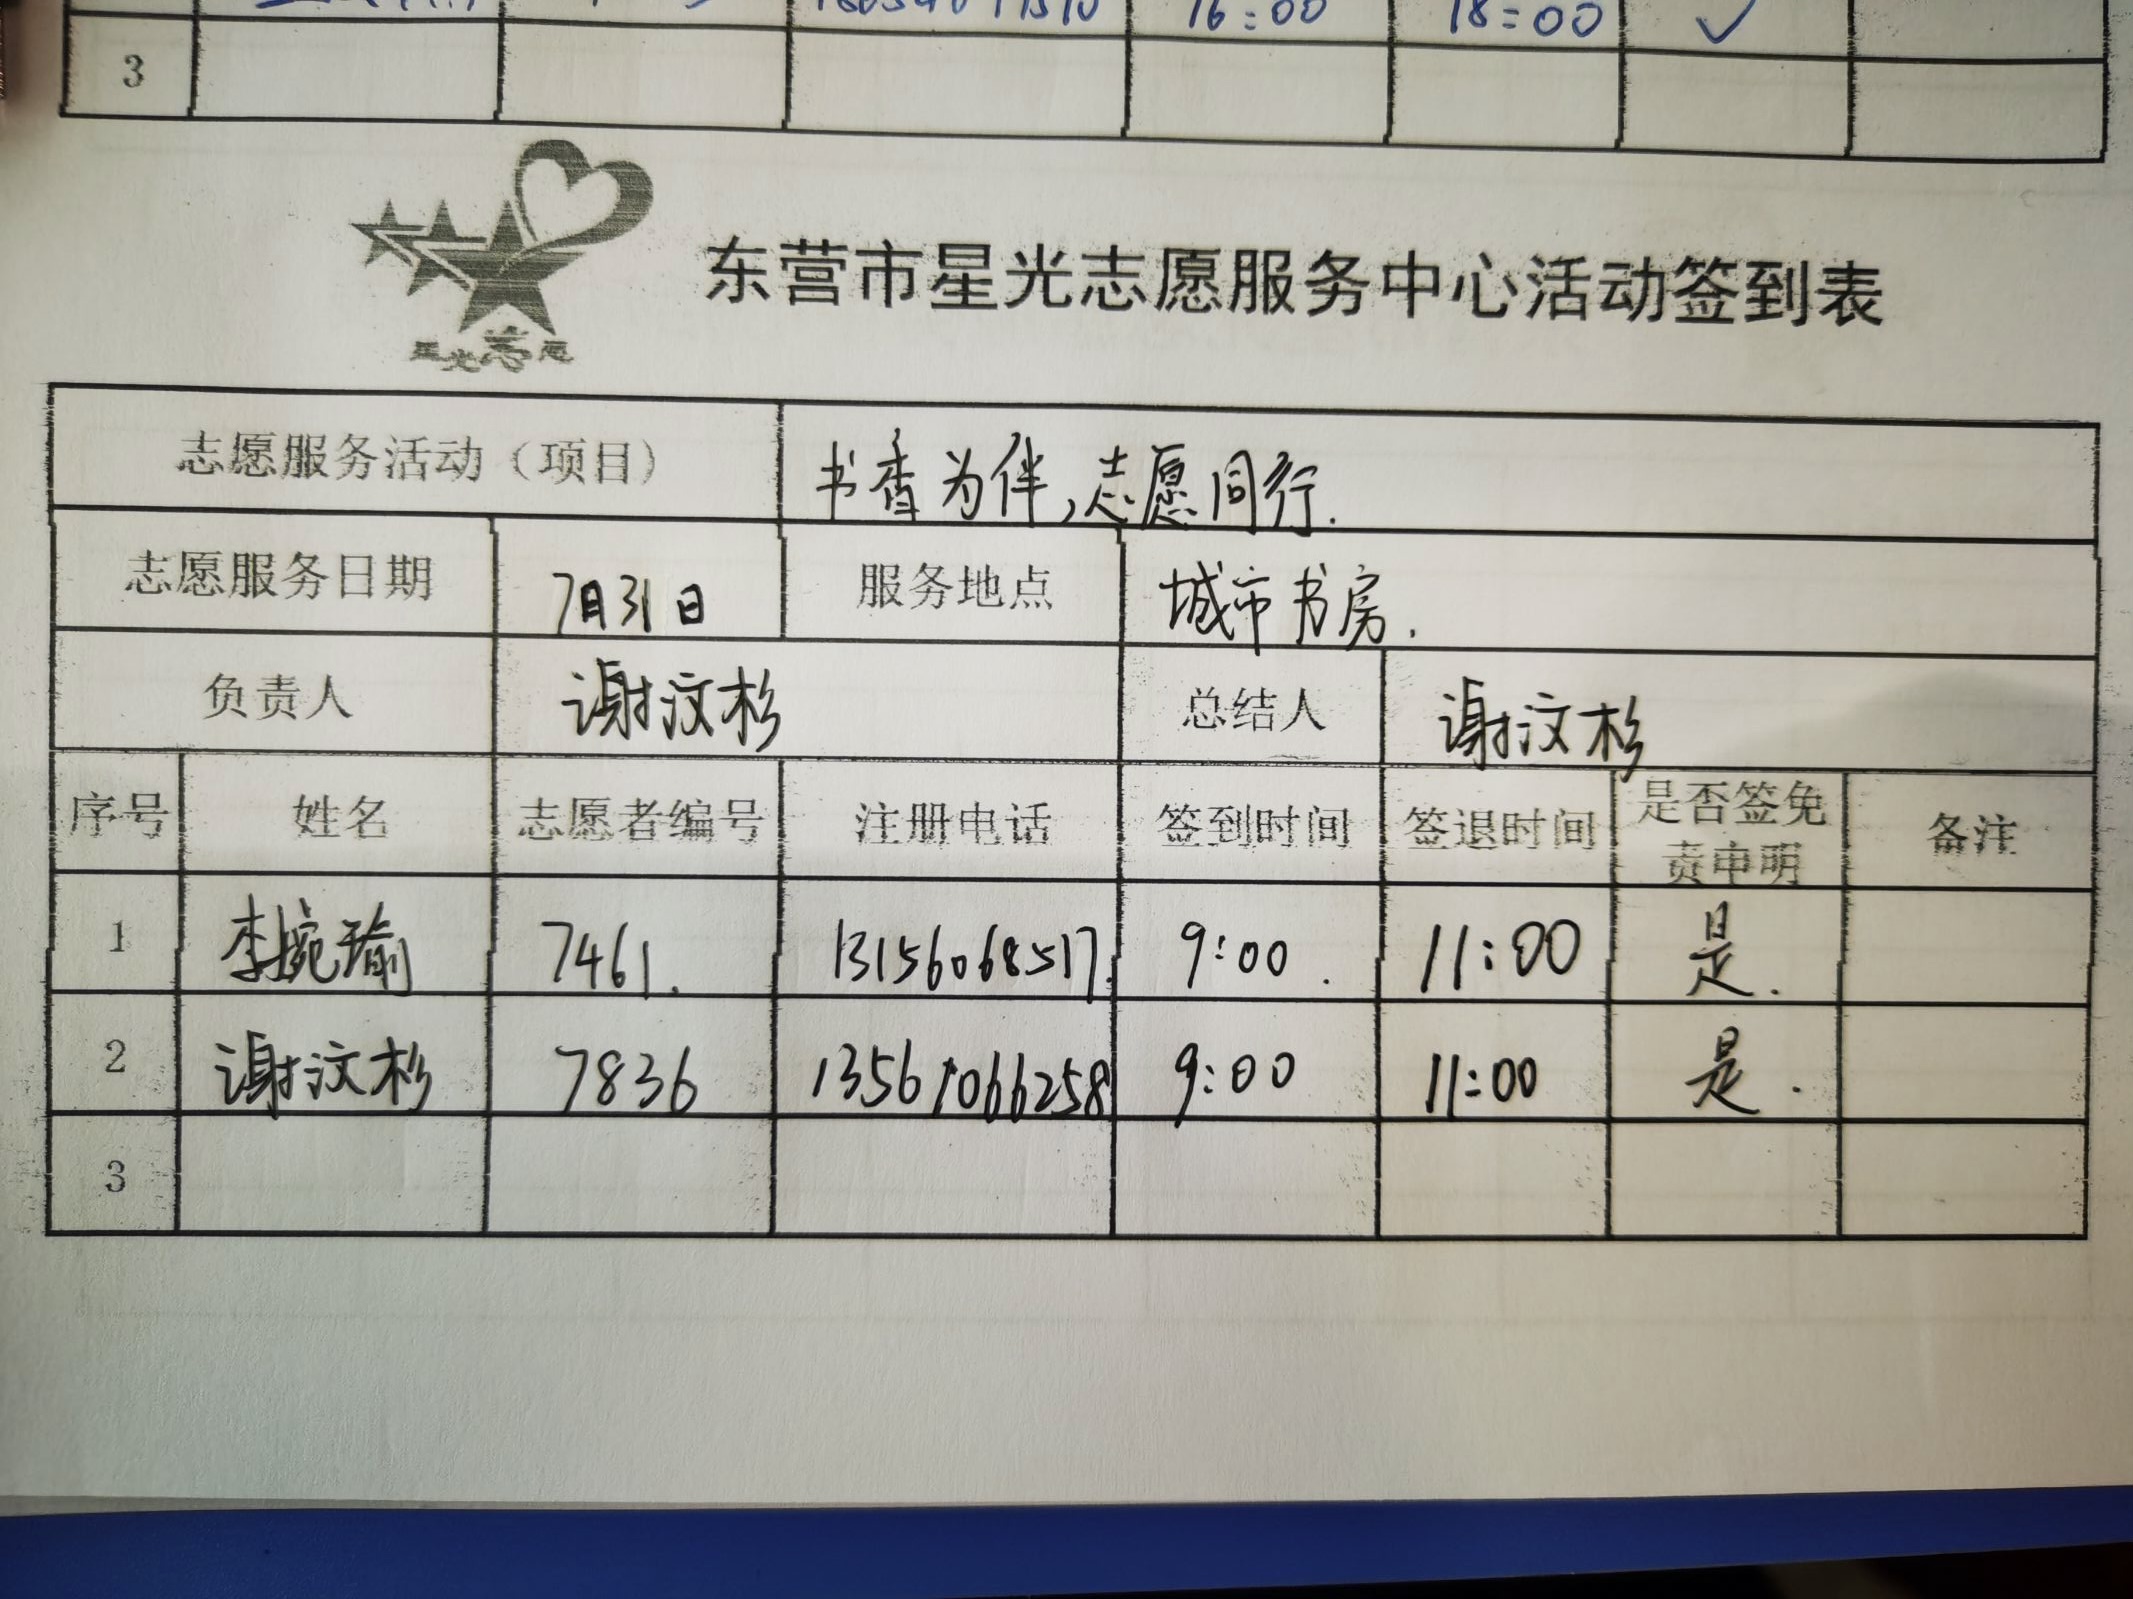 16:00 18:00 ✓
3
星光志愿
东营市星光志愿服务中心活动签到表
志愿服务活动（项目） 书香为伴,志愿同行.
志愿服务日期 7月31日 服务地点 城市书房.
负责人 谢汶杉 总结人 谢汶杉
序号 姓名 志愿者编号 注册电话 签到时间 签退时间 是否签免责申明 备注
1 李婉瑜 7461. 13156068517. 9:00. 11:00 是.
2 谢汶杉 7836 13561066258 9:00 11:00 是.
3